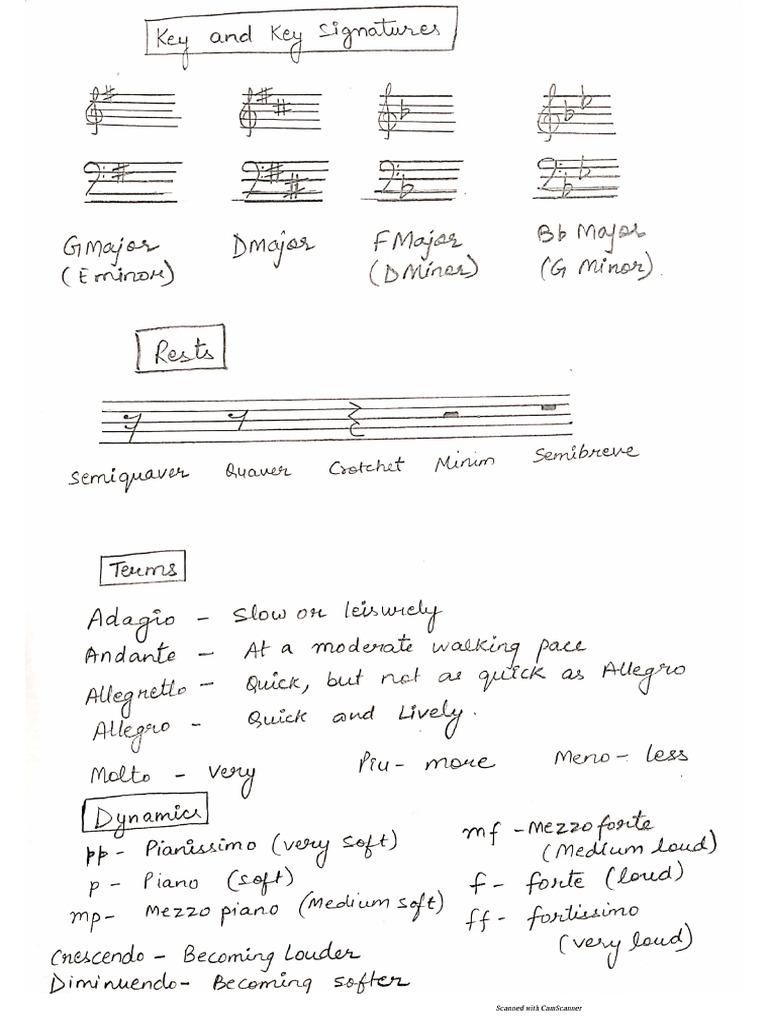 Key and Key Signatures
G Major
(E minor)
D major
F Major
(D Minor)
B♭ Major
(G Minor).
Rests
Semiquaver Quaver Crotchet Minim Semibreve
Terms
Adagio - Slow or leisurely
Andante - At a moderate walking pace
Allegretto - Quick, but not as quick as Allegro
Allegro - Quick and Lively.
Molto - very Piu - more Meno - less
Dynamics
pp - Pianissimo (very soft)
p - Piano (soft)
mp - Mezzo piano (Medium soft)
mf - Mezzo forte
(Medium loud)
f - forte (loud)
ff - fortissimo
(very loud)
Crescendo - Becoming Louder
Diminuendo - Becoming softer
Scanned with CamScanner